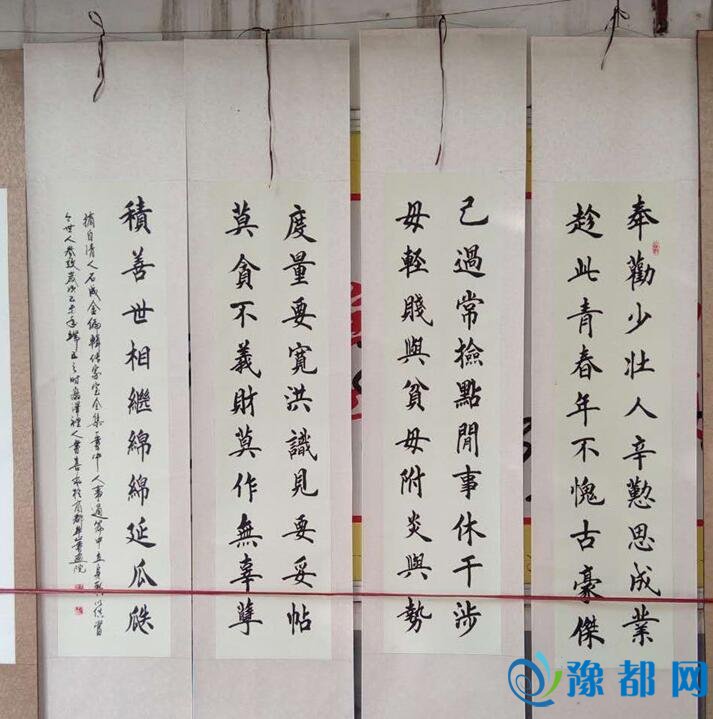 奉勸少壮人辛懃思成業
趁此青春年不愧古豪傑
己過常撿點閒事休干涉
毋輕賤與貧毋附炎與勢
度量要寬洪識見要妥帖
莫貪不義財莫作無辜孽
積善世相繼綿綿延瓜瓞
摘自清人石成金编輯傳家宝全集一書中人事通
豫都网